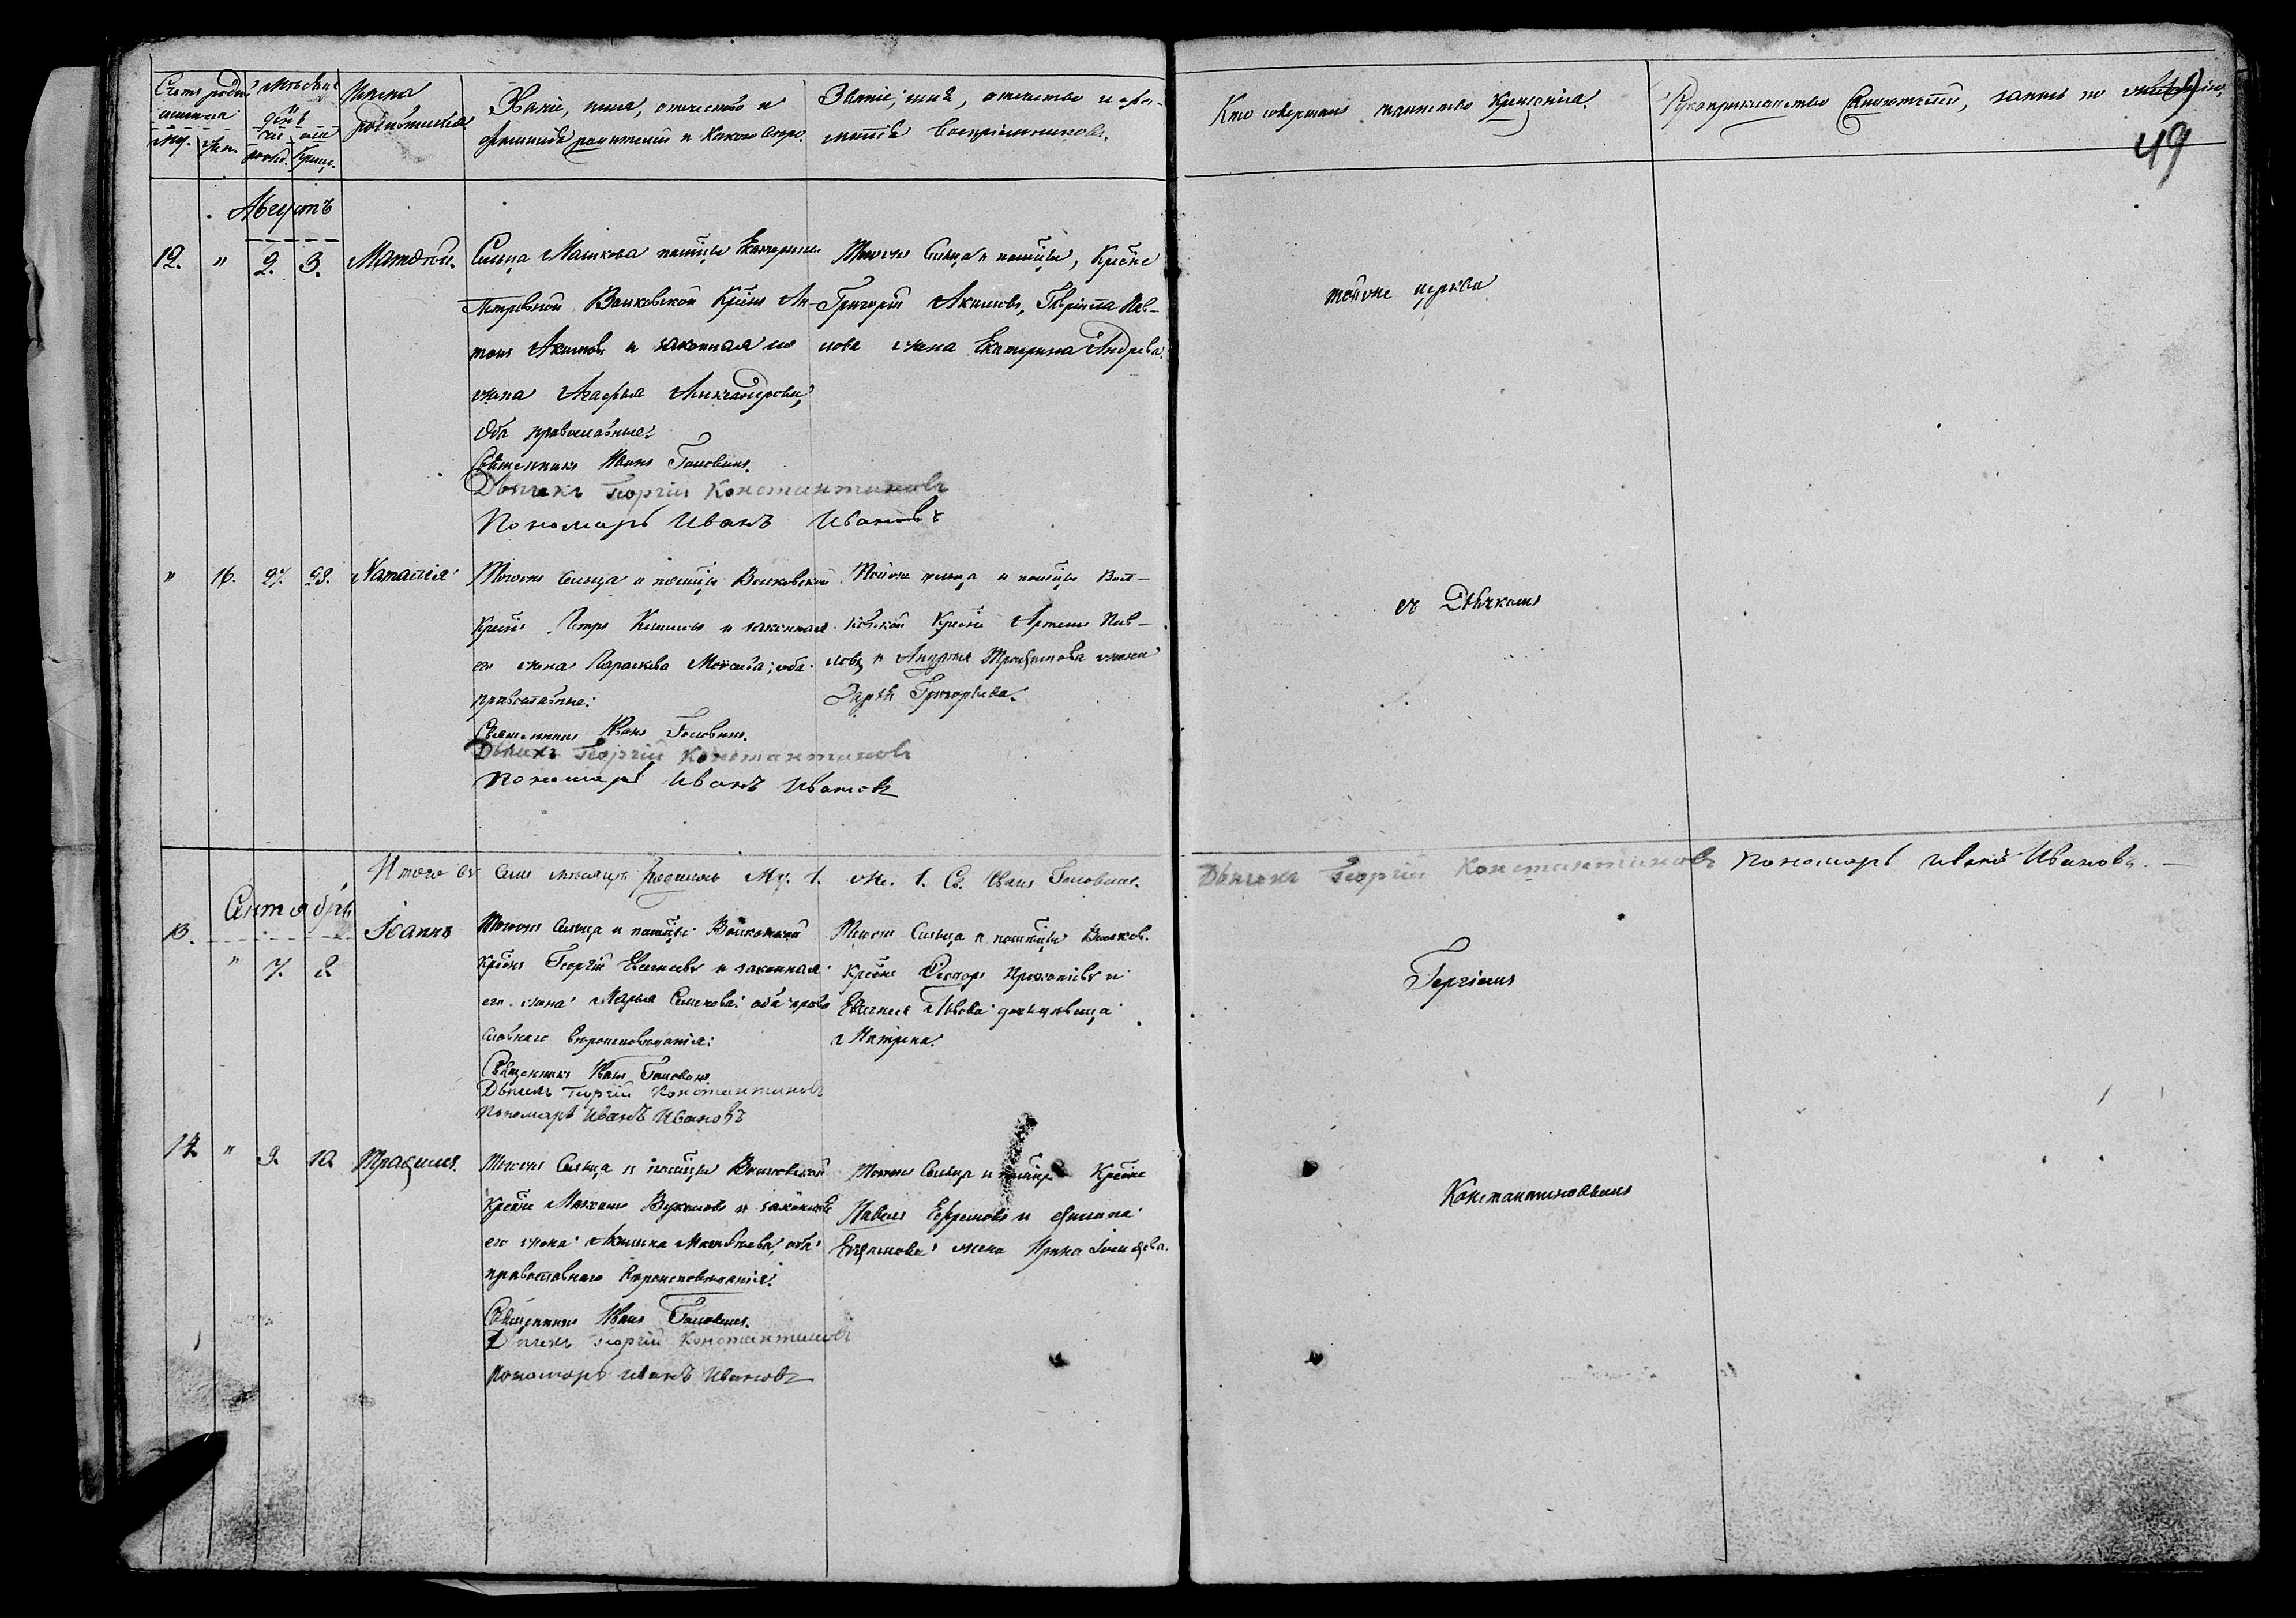 Счетъ родив
шихся
му. жен.
Месяцъ
день
рожд. Крещ.
Имена
родившихся
Званіе, имя, отечество и
фамилія родителей и Какого веро.
Званіе, имя, отчество и фа-
милія воспріемниковъ.
Кто совершалъ таинство Крещенія
Рукоприкладство Свидетелей, записи по
49
Августъ
12. " 2. 3. Матвей.
Сельца Машкова помщцы Екатерины
Петровной Волковской Крест Ан-
тонъ Акимовъ и законная его
жена Агафья Александрова,
Оба православные:
Священникъ Иванъ Головинъ.
Дьячекъ Георгій Константиновъ
Пономарь Иванъ Ивановъ
Тогоже Сельца и помщцы, Крестне
Григорій Акимовъ, Гавріила Пав-
лова жена Екатерина Андреева.
тойже церкви
" 16. 27. 28. Наталія
Тогоже Сельца и помщцы Волковской
Крестне Петръ и законная
его жена Параскева; оба
православные:
Священникъ Иванъ Головинъ.
Дьячекъ Георгій Константиновъ
Пономарь Иванъ Ивановъ
Тойже сельца и помщцы Вол-
ковской Крестне Артемъ Пав-
ловъ и Андрея Трофимова жена
Григорьева.
съ Дьячкомъ
Итого въ Семъ месяцъ родилось Му. 1. же. 1. Св. Иванъ Головинъ.
Дьячекъ Георгій Константиновъ Пономарь Иванъ Ивановъ.
Сентябрь
13. " 7. 8. Іоаннъ
Тогоже Сельца и помщцы Волковской
Крестне Георгій и законная
его жена Марья Семенова: оба право
славнаго вероисповеданія:
Священникъ Иванъ Головинъ
Дьячекъ Георгій Константиновъ
Пономарь Иванъ Ивановъ
Тогоже Сельца и помщцы Волков.
Крестне Феодоръ и
Евгенія Львова девица
Георгіемъ
14. " 9. 10. Трофимъ.
Тогоже Сельца и помщцы Волковской
Крестне и законная
его жена Матвеева, оба
православнаго вероисповеданія:
Священникъ Иванъ Головинъ.
Дьячекъ Георгій Константиновъ
Пономарь Иванъ Ивановъ
Тогоже Сельца и помщцы Крестне
Павелъ Ефремовъ и Филипа
жена Ирина
Константиновымъ